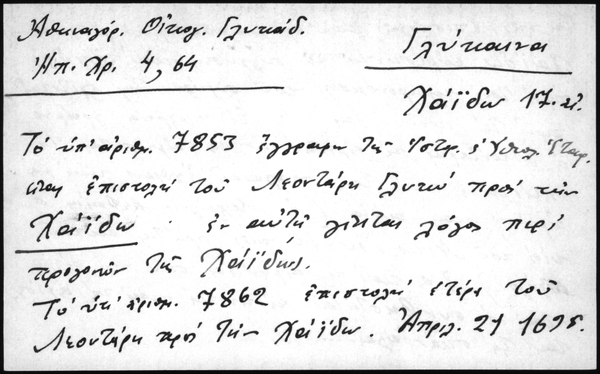 Ἀθηναγόρ. Οἰκογ. Γλυκάδ.
Ἠπ. Χρ. 4, 64
Γλύκαινα
Χάϊδω 17. αἰ.
Τό ὑπ' ἀριθμ. 7853 ἔγγραφον τῆς Ἱστορ.
εἶναι ἐπιστολή τοῦ Λεοντάρη Γλυκύ πρός τήν
Χάϊδω ἐν αὐτῇ γίνεται λόγος περί
προγονῶν τῆς Χάϊδως.
Τό ὑπ' ἀριθμ. 7862 ἐπιστολή ἑτέρα τοῦ
Λεοντάρη πρός τήν Χάϊδω. Ἀπριλ. 21 1695.